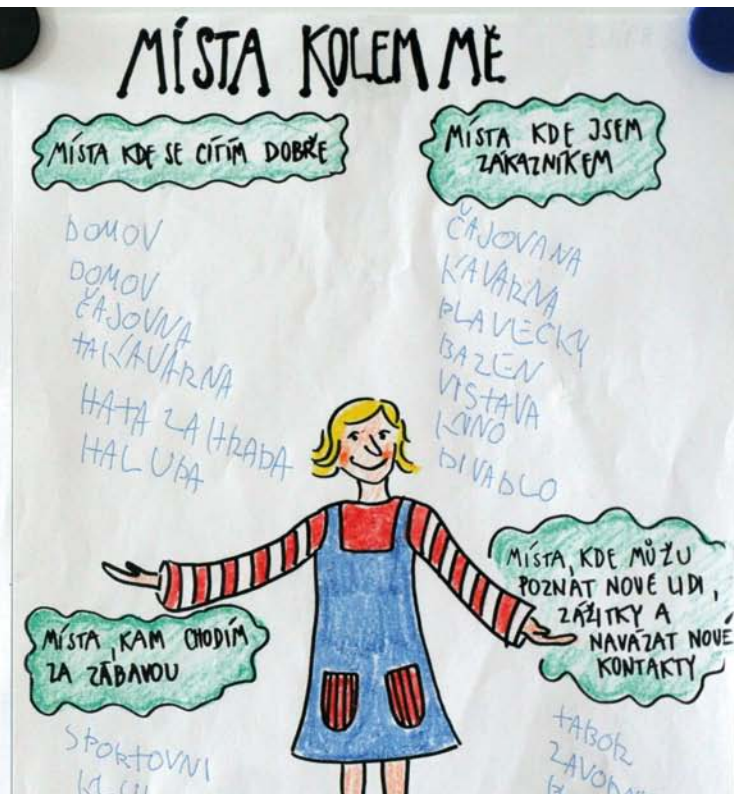 MÍSTA KOLEM MĚ
MÍSTA KDE SE CÍTÍM DOBŘE
DOMOV
DOMOV
ČAJOVNA
HATA ZAHRADA
HALUPA
MÍSTA KDE JSEM
ZÁKAZNÍKEM
ČAJOVANA
KAVARNA
PLAVECKY
BAZEN
VISTAVA
KINO
DIVADLO
MÍSTA, KAM CHODÍM
ZA ZÁBAVOU
SPORTOVNI
MÍSTA, KDE MŮŽU
POZNAT NOVÉ LIDI,
ZÁŽITKY A
NAVÁZAT NOVÉ
KONTAKTY
TABOR